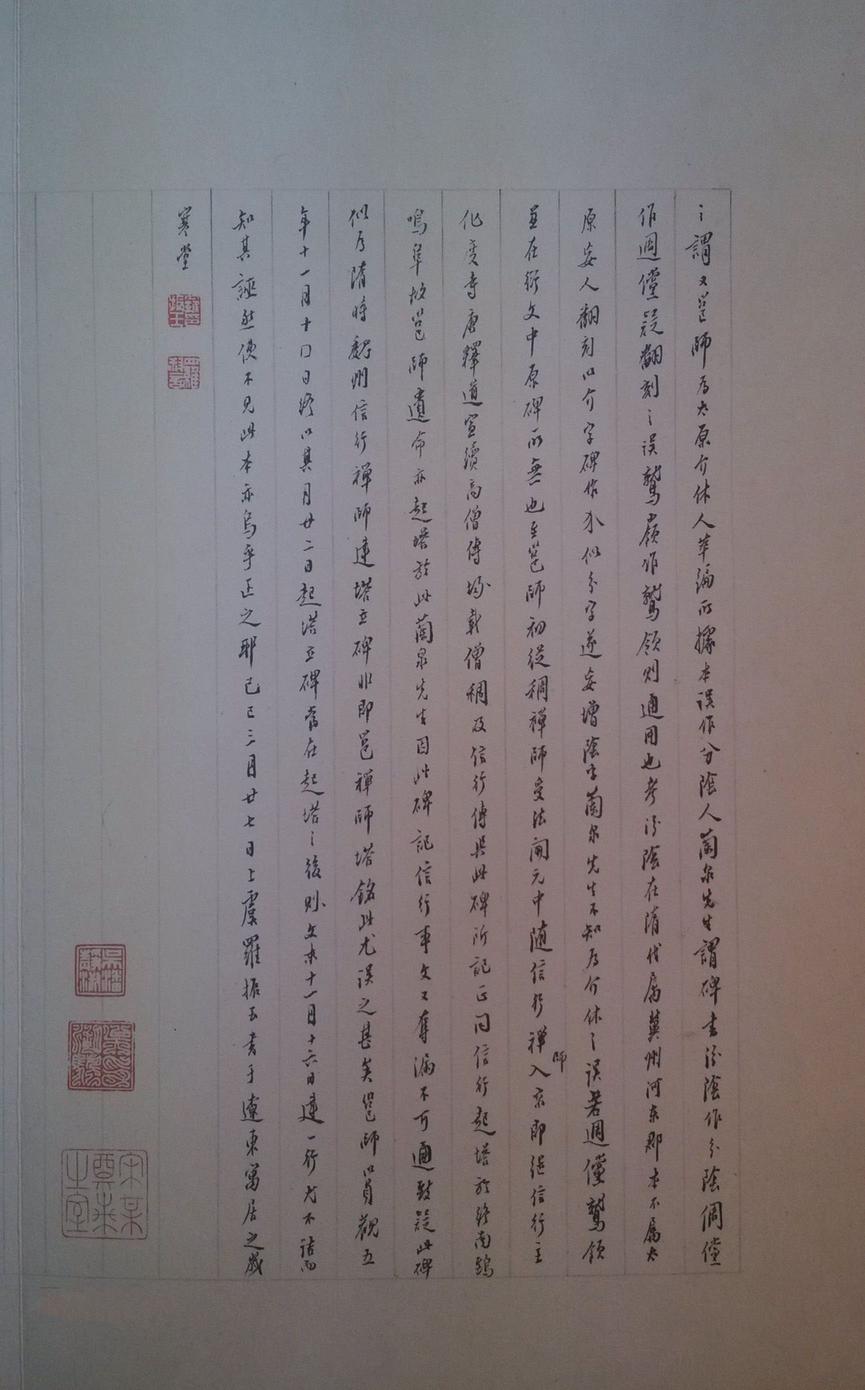 之謂又邕師為太原介休人萃編所據本誤作分陰人蘭泉先生謂碑書汾陰作分陰倜儻
作週儻疑翻刻之誤鷲嶺作鷲領則通用也考汾陰在隋代屬冀州河東郡本不屬太
原妄人翻刻以介字碑作尒似分字遂妄增陰字蘭泉先生不知為介休之誤若週儻鷲領
並在衍文中原碑所無也至邕師初從稠禪師受法開元中隨信行禪師入京即繼信行主
化度寺唐釋道宣續高僧傳均載僧稠及信行傳與此碑所記正同信行起塔於終南鴟
鳴阜故邕師遺命亦起塔於此蘭泉先生因此碑記信行事文又奪漏不可通致疑此碑
似为隋時魏州信行禪師建塔立碑非即邕禪師塔銘此尤誤之甚矣邕師以貞觀五
年十一月十□日終以其月廿二日起塔立碑當在起塔之後則文末十一月十六日建一行尤不詰而
知其誣然使不見此本亦烏乎正之耶己巳三月廿七日上虞羅振玉書于遼東寓居之歲
寒堂